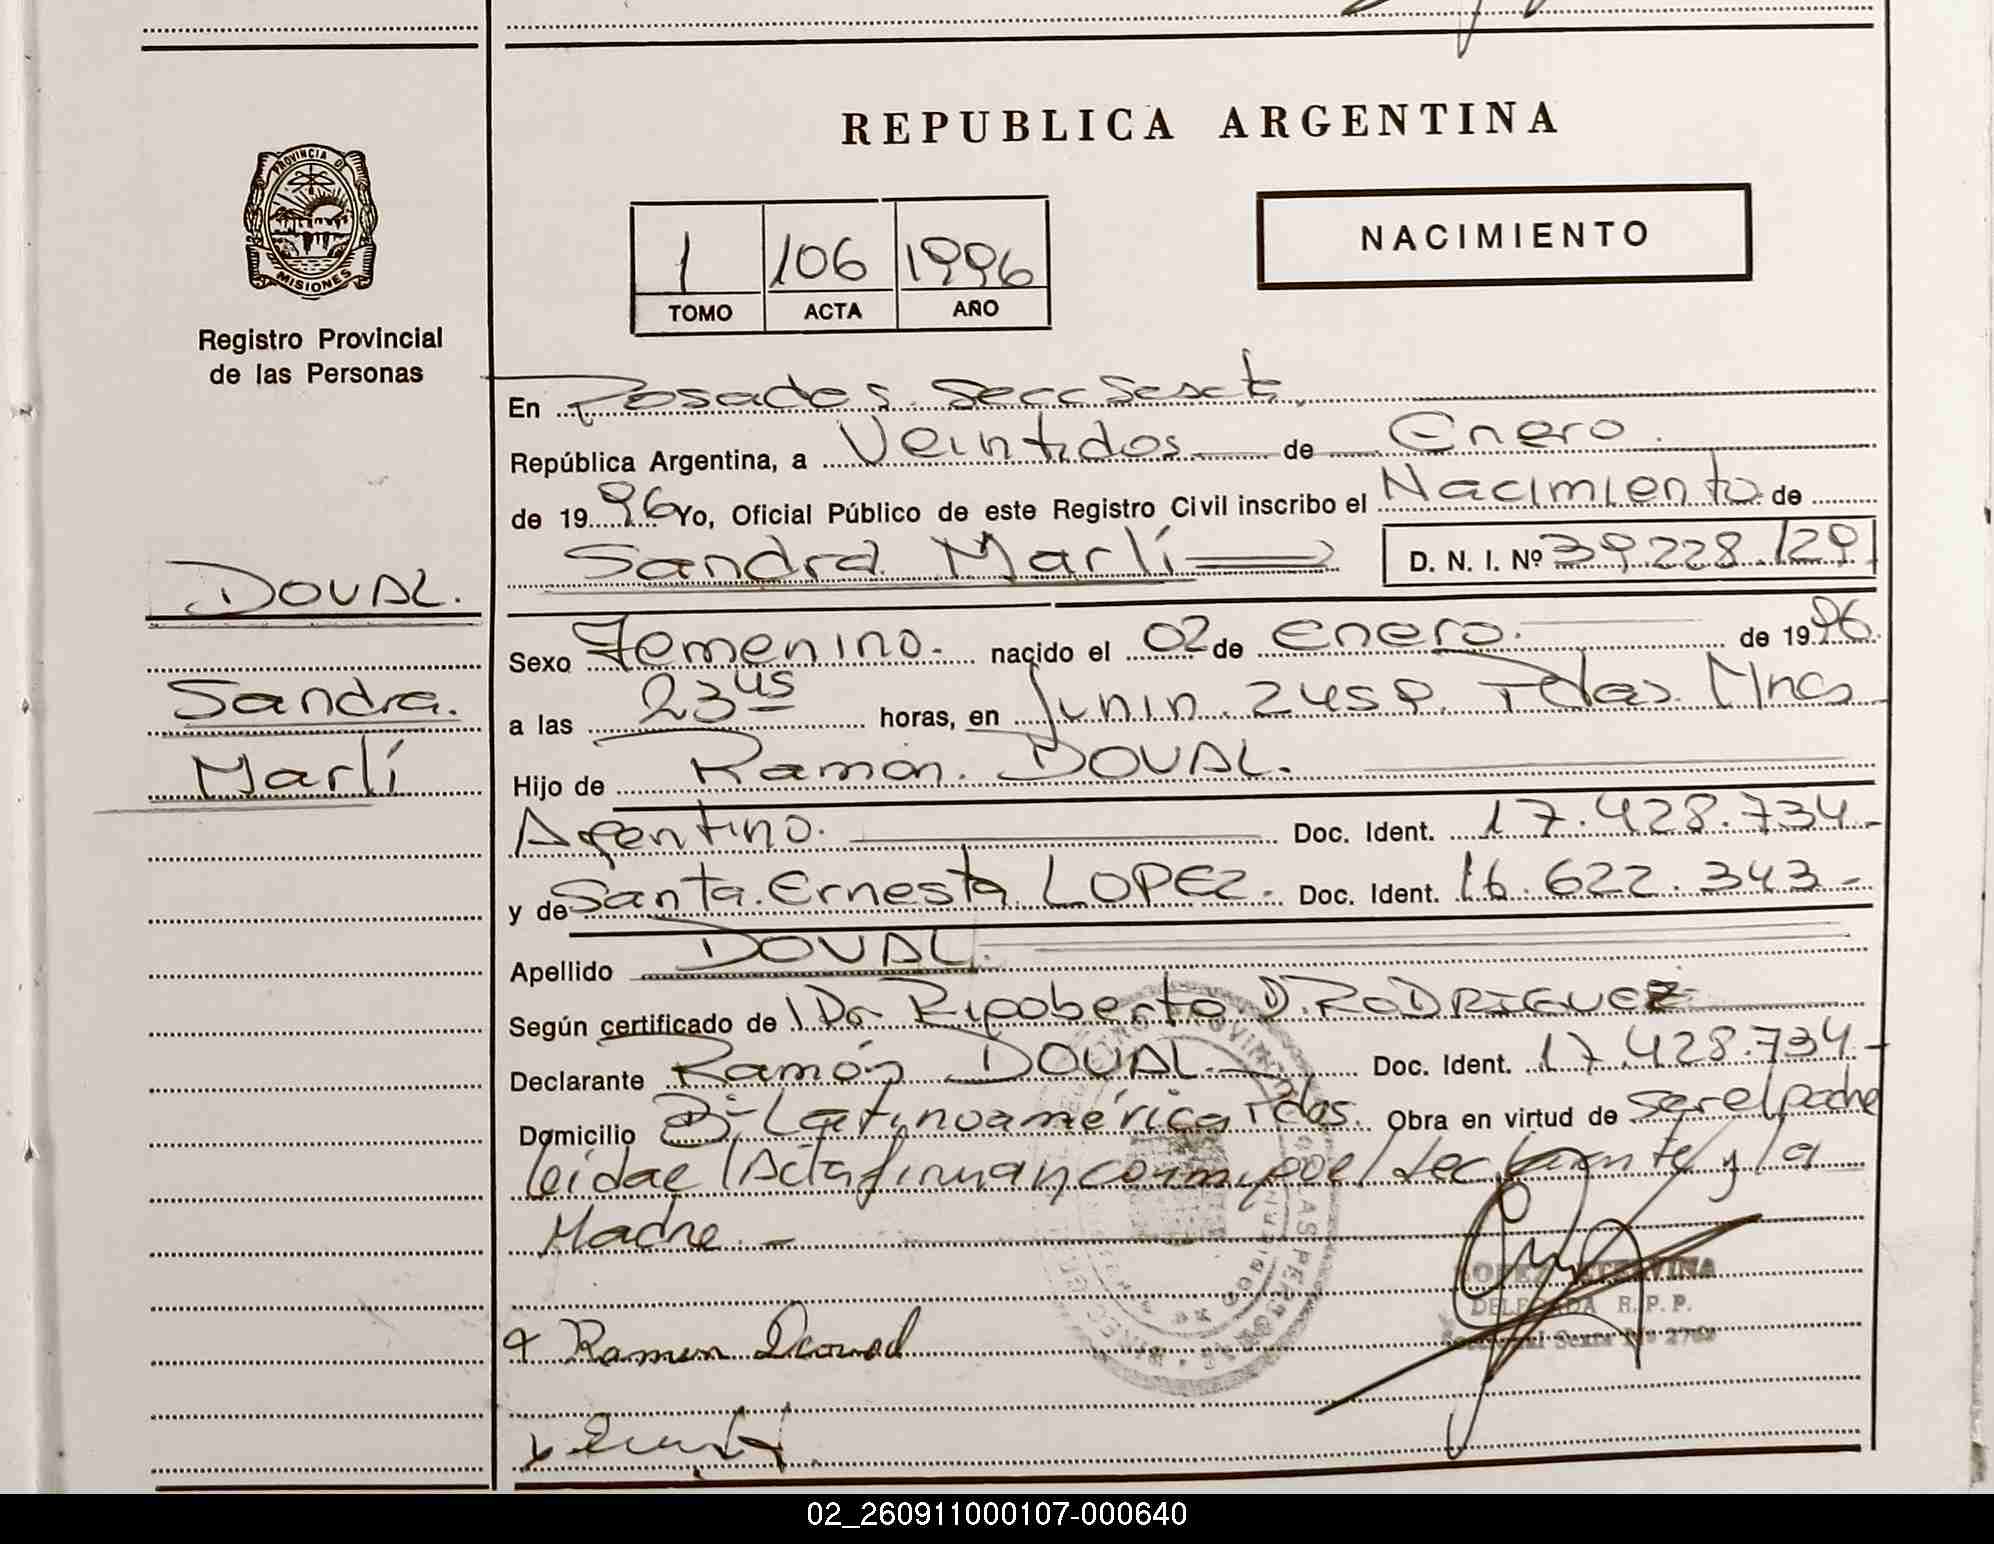 REPUBLICA ARGENTINA
PROVINCIA DE
MISIONES
Registro Provincial
de las Personas
1 106 1996
TOMO ACTA AÑO
NACIMIENTO
En Posadas. Secc Sexta.
República Argentina, a Veintidos de Enero.
de 1996 Yo, Oficial Público de este Registro Civil inscribo el Nacimiento de
Sandra Marlí D. N. I. Nº 39.228.129
DOUAL.
Sandra.
Marlí
Sexo Femenino. nacido el 02 de Enero. de 1996.
a las 23 45 horas, en Junin. 2459. Pdas. Mnes
Hijo de Ramón. DOUAL.
Argentino. Doc. Ident. 17.428.734-
y de Santa. Ernesta LOPEZ. Doc. Ident. 16.622.343-
Apellido DOUAL.
Según certificado de Dr Rigoberto D. RODRIGUEZ
Declarante Ramón DOUAL. Doc. Ident. 17.428.734-
Domicilio Bº Latinoamérica Pdas. Obra en virtud de ser el padre
leida el Acta firman conmigo el declarante y la
Madre. -
LOPEZ ETELVINA
DELEGADA R. P. P.
Ramon Doual
02_260911000107-000640